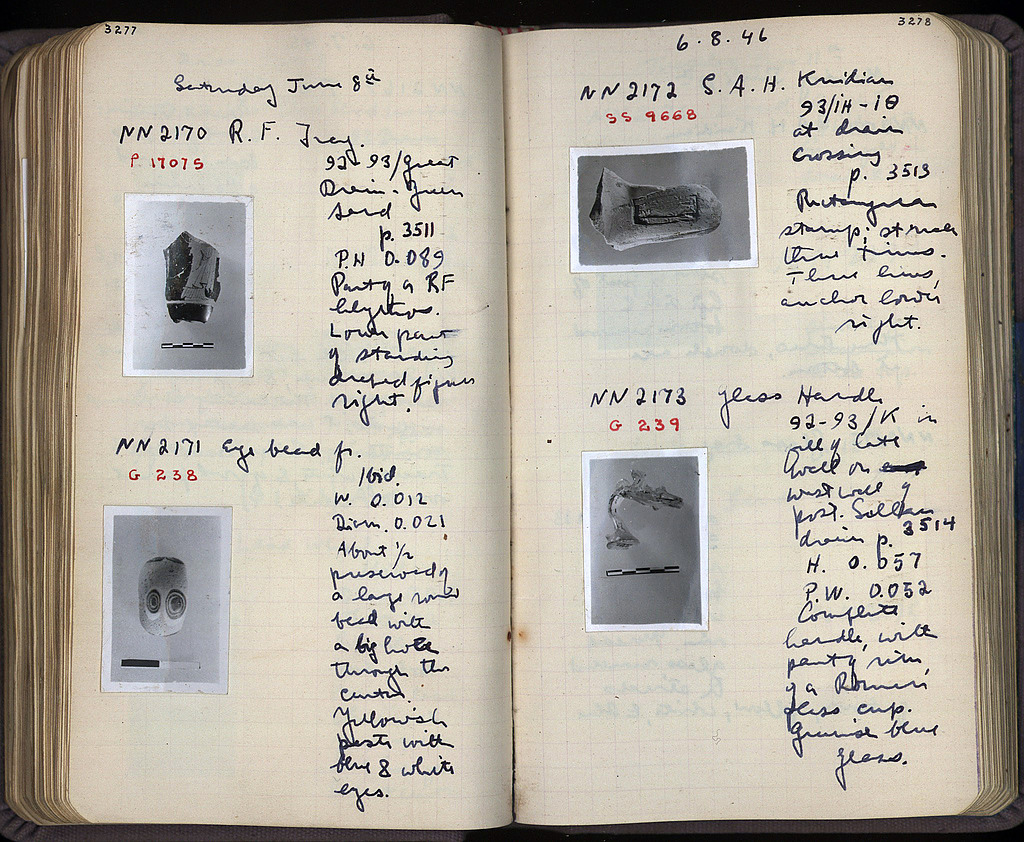 3277
Saturday June 8th
NN 2170 R. F. Frag.
P 17075
92-93/Great
Drain - green
sand
p. 3511
P.H 0.089
Part of a RF
lekythos.
Lower part
of standing
draped figure
right.
NN 2171 Eye bead fr.
G 238
Ibid.
W. 0.012
Diam. 0.021
About 1/2
preserved of
a large round
bead with
a big hole
through the
center.
Yellowish
paste with
blue & white
eyes.
3278
6.8.46
NN 2172 S. A. H. Knidian
SS 9668
93/ΙΗ-ΙΘ
at drain
crossing
p. 3513
Rectangular
stamp, struck
three times.
Three lines,
anchor border
right.
NN 2173 Glass Handle
G 239
92-93/K in
fill of late
well on
west wall of
post. Sullan
drain p. 3514
H. 0.057
P.W. 0.052
Complete
handle, with
part of rim,
of a Roman
glass cup.
Greenish blue
glass.